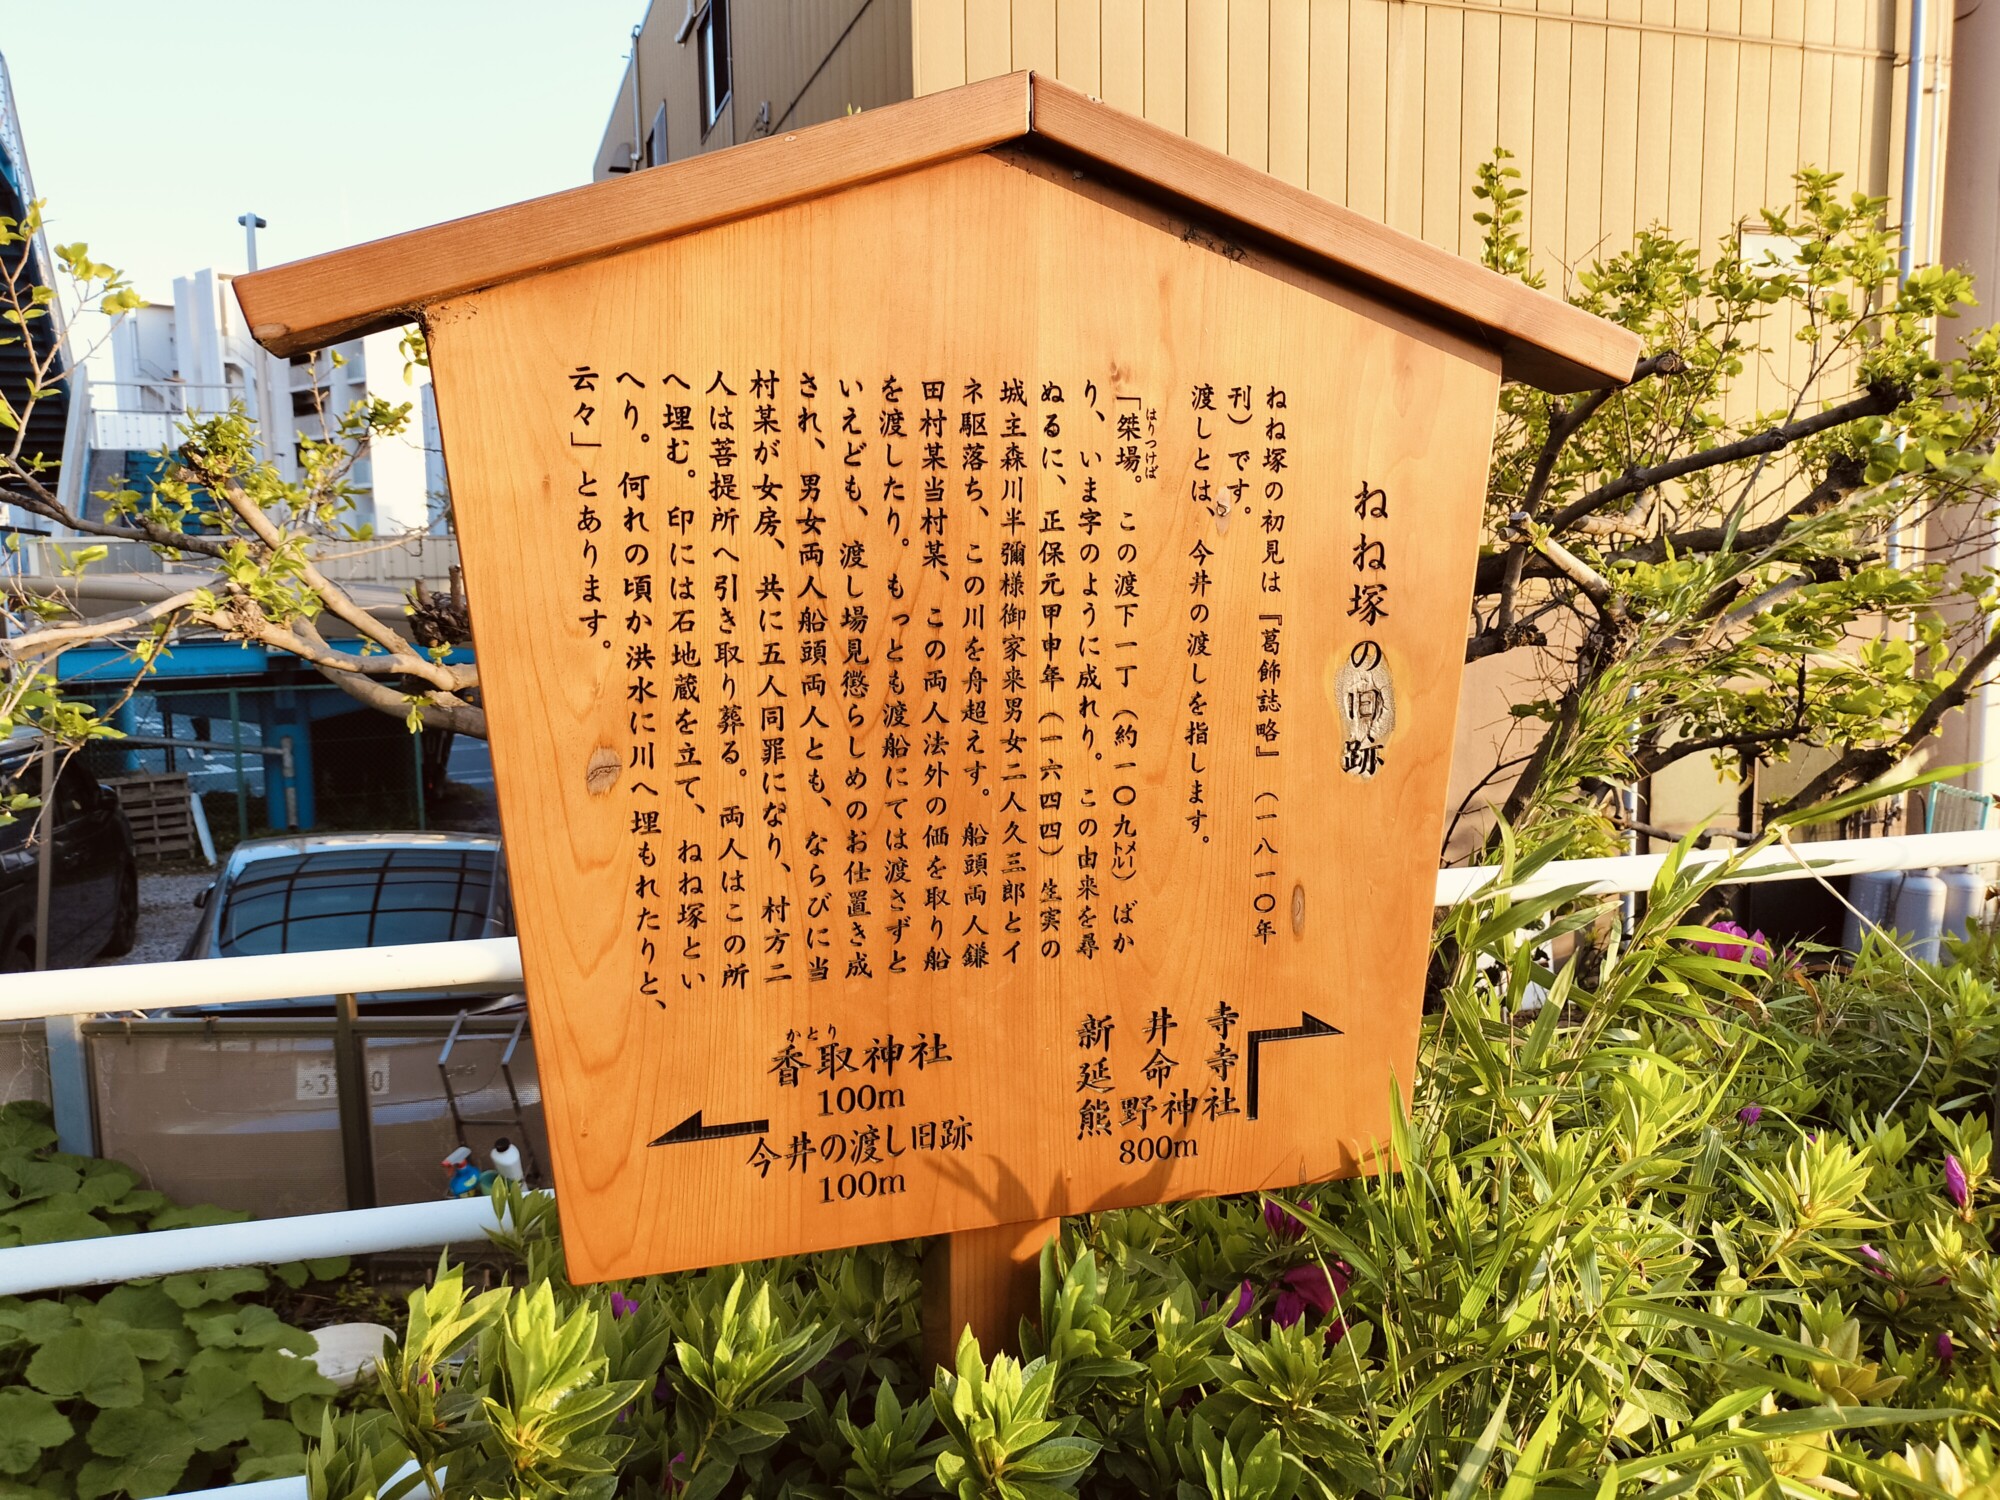 ねね塚の旧跡
ねね塚の初見は『葛飾誌略』（一八一〇年
刊）です。
渡しとは、今井の渡しを指します。
「桀場。この渡下一丁（約一〇九メートル）ばか
はりつけば
り、いま字のように成れり。この由来を尋
ぬるに、正保元甲申年（一六四四）生実の
城主森川半彌様御家来男女二人久三郎とイ
ネ駆落ち、この川を舟超えす。船頭両人鎌
田村某当村某、この両人法外の価を取り船
を渡したり。もっとも渡船にては渡さずと
いえども、渡し場見懲らしめのお仕置き成
され、男女両人船頭両人とも、ならびに当
村某が女房、共に五人同罪になり、村方二
人は菩提所へ引き取り葬る。両人はこの所
へ埋む。印には石地蔵を立て、ねね塚とい
へり。何れの頃か洪水に川へ埋もれたりと、
云々」とあります。
新井寺
延命寺
熊野神社
800m
かとり
香取神社
100m
今井の渡し旧跡
100m